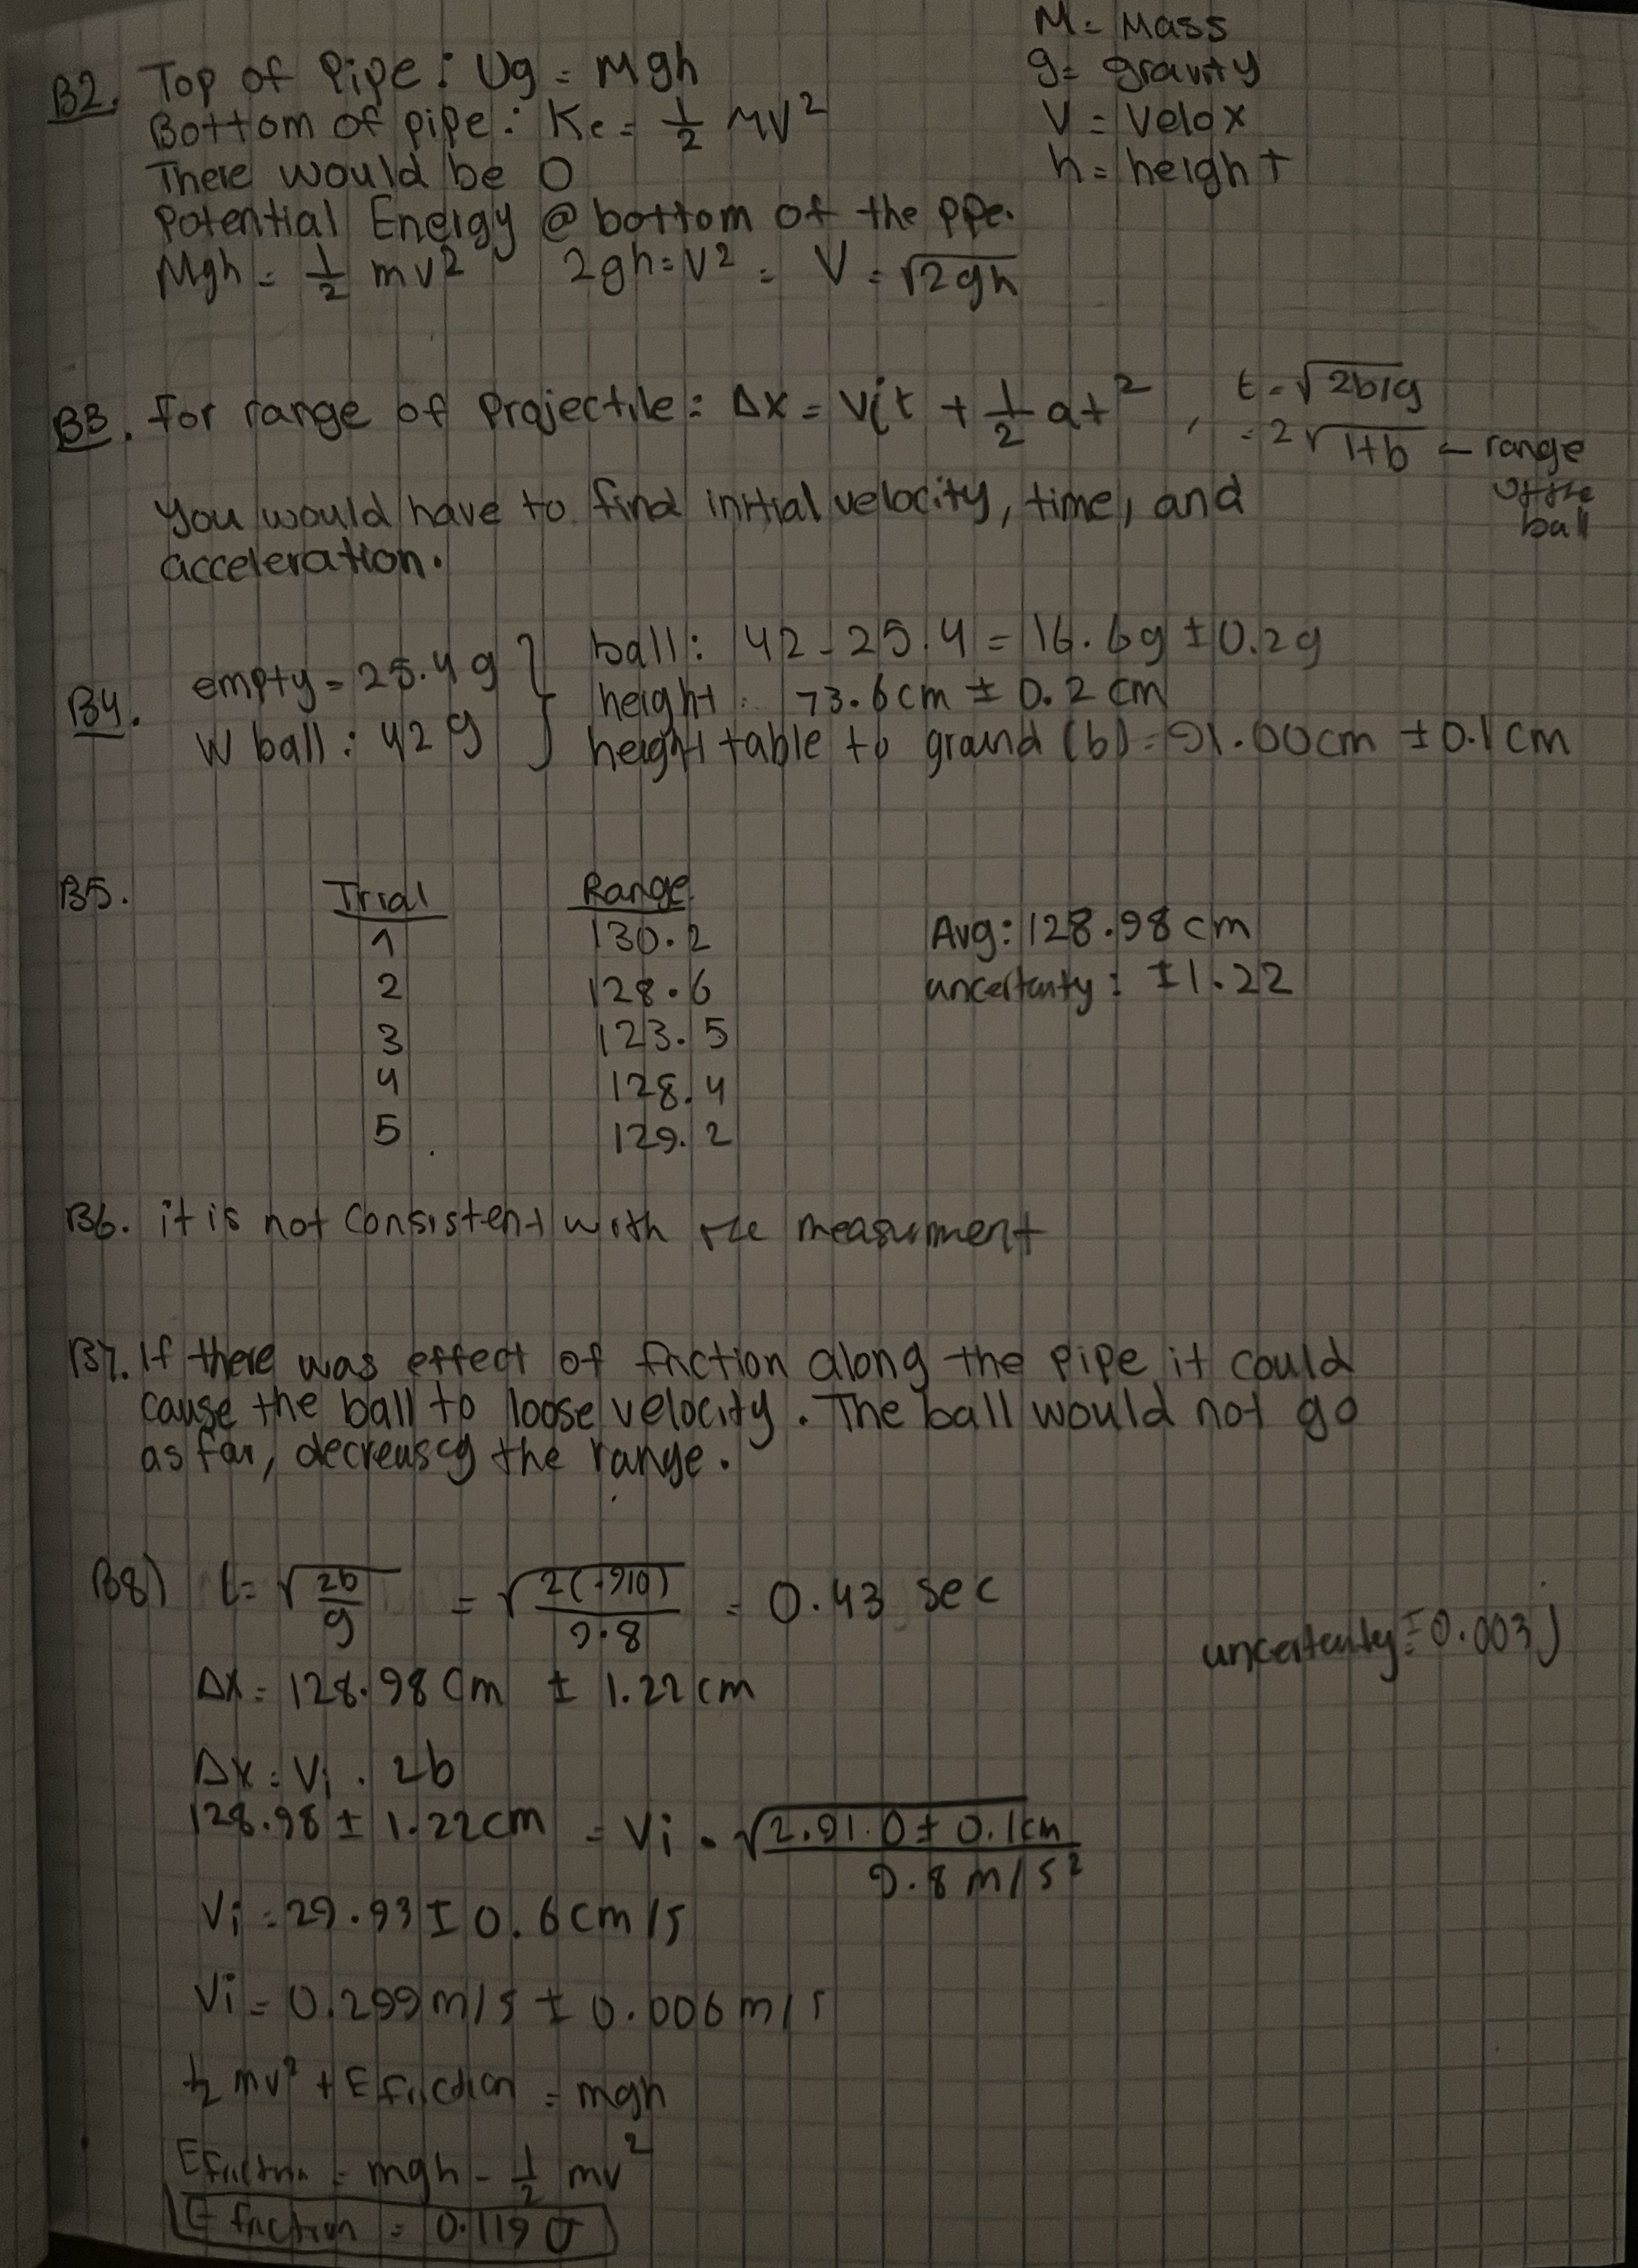 M = Mass
g = gravity
V = Velox
h = height
B2. Top of Pipe: Ug = Mgh
Bottom of pipe: Ke = 1/2 MV²
There would be 0
Potential Energy @ bottom of the ppe.
Mgh = 1/2 mv² 2gh = V² = V = √2gh
B3. For range of Projectile: Δx = Vit + 1/2 at², t = √2b/g
= 2√1+b ← range of the ball
You would have to find initial velocity, time, and
acceleration.
B4. empty = 25.4 g } ball: 42 - 25.4 = 16.6g ± 0.2g
W ball: 42 g height: 73.6cm ± 0.2 cm
height table to ground (b) = 91.00cm ± 0.1 cm
B5. Trial Range
1 130.2 Avg: 128.98 cm
2 128.6 uncertanty: ±1.22
3 123.5
4 128.4
5 129.2
B6. it is not consistent with the measurment
B7. If there was effect of friction along the pipe it could
cause the ball to loose velocity. The ball would not go
as far, decreasing the range.
B8) t = √2b/g = √2(.910)/9.8 = 0.43 sec
uncertenty = ±0.003 j
Δx = 128.98 cm ± 1.22 cm
Δx = Vi . 2b
128.98 ± 1.22cm = Vi • √2.91.0 ± 0.1cm/9.8 m/s²
Vi = 29.93 ± 0.6 cm/s
Vi = 0.299 m/s ± 0.006 m/s
1/2 mv² + E friction = mgh
E friction = mgh - 1/2 mv²
E friction = 0.119 J